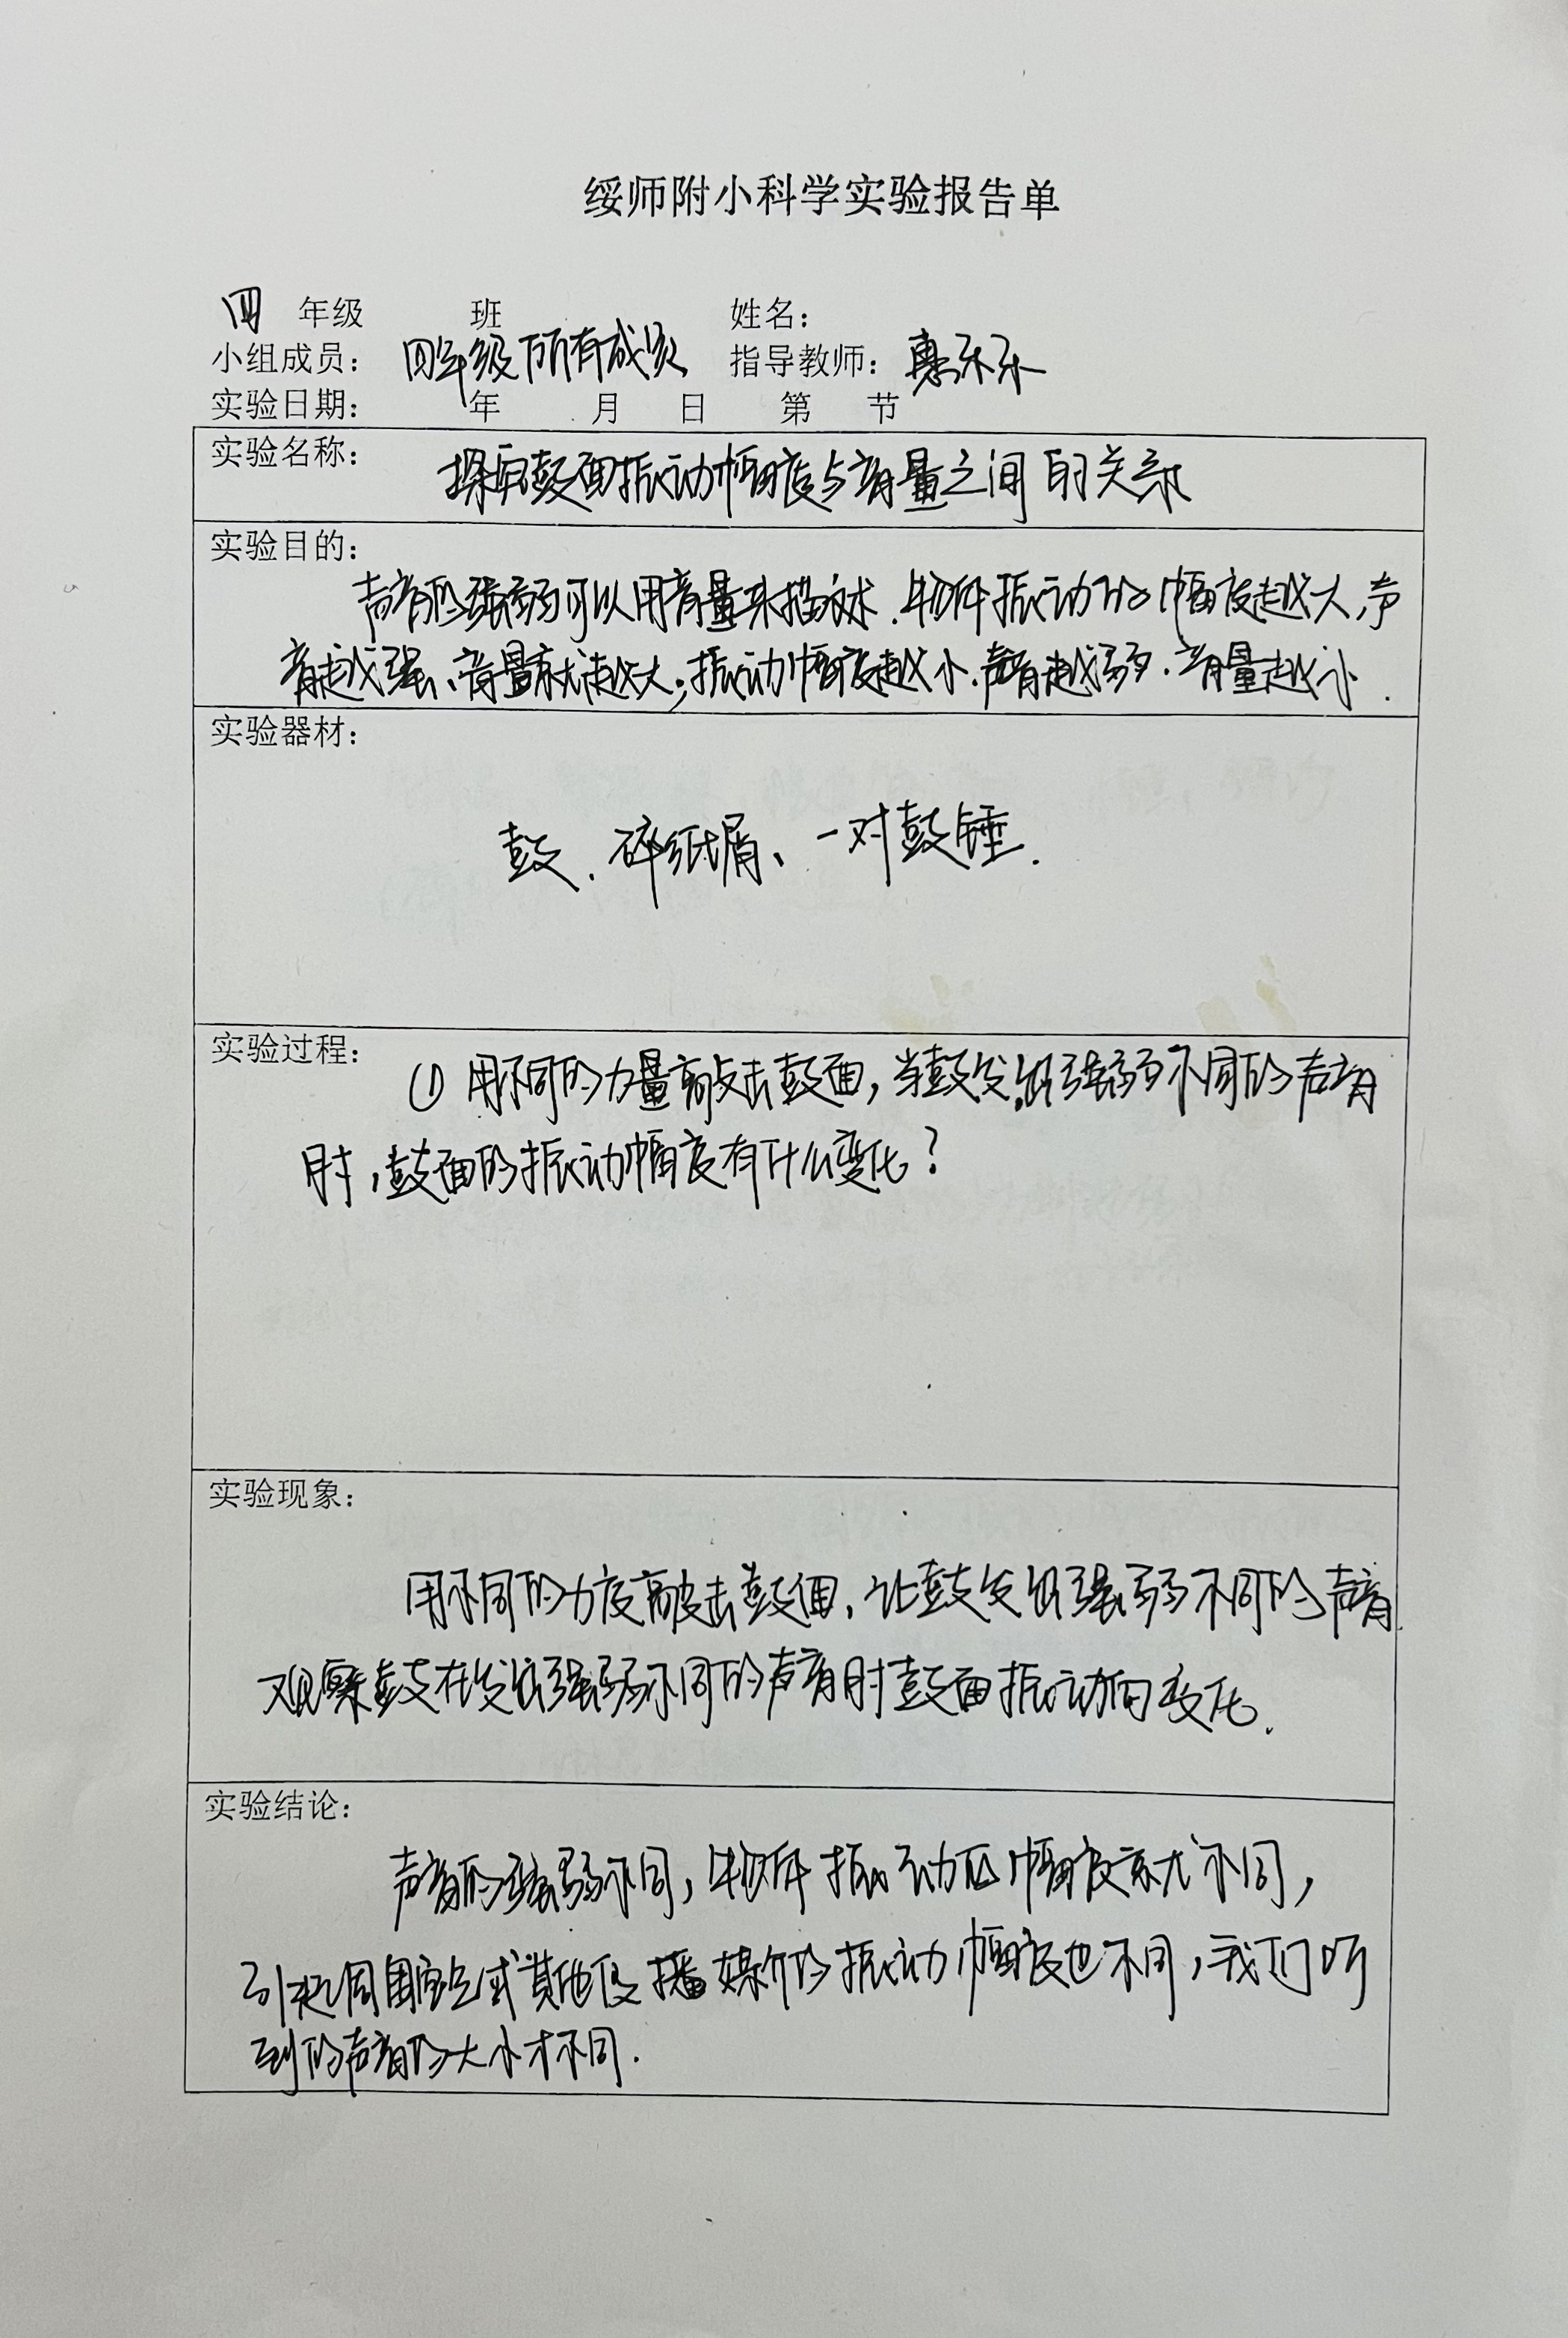 绥师附小科学实验报告单
四 年级 班 姓名：
小组成员： 四年级所有成员 指导教师： 惠乐乐
实验日期： 年 月 日 第 节
实验名称： 探究鼓面振动幅度与音量之间的关系
实验目的：
声音的强弱可以用音量来描述.物体振动的幅度越大,声
音越强、音量就越大;振动幅度越小.声音越弱.音量越小.
实验器材：
鼓、碎纸屑、一对鼓锤.
实验过程：
① 用不同的力量敲击鼓面,当鼓发出强弱不同的声音
时,鼓面的振动幅度有什么变化?
实验现象：
用不同的力度敲击鼓面,让鼓发出强弱不同的声音.
观察鼓在发出强弱不同的声音时鼓面振动的变化.
实验结论：
声音的强弱不同,物体振动的幅度就不同,
引起周围空气或其他传播媒介的振动幅度也不同,我们听
到的声音的大小才不同.